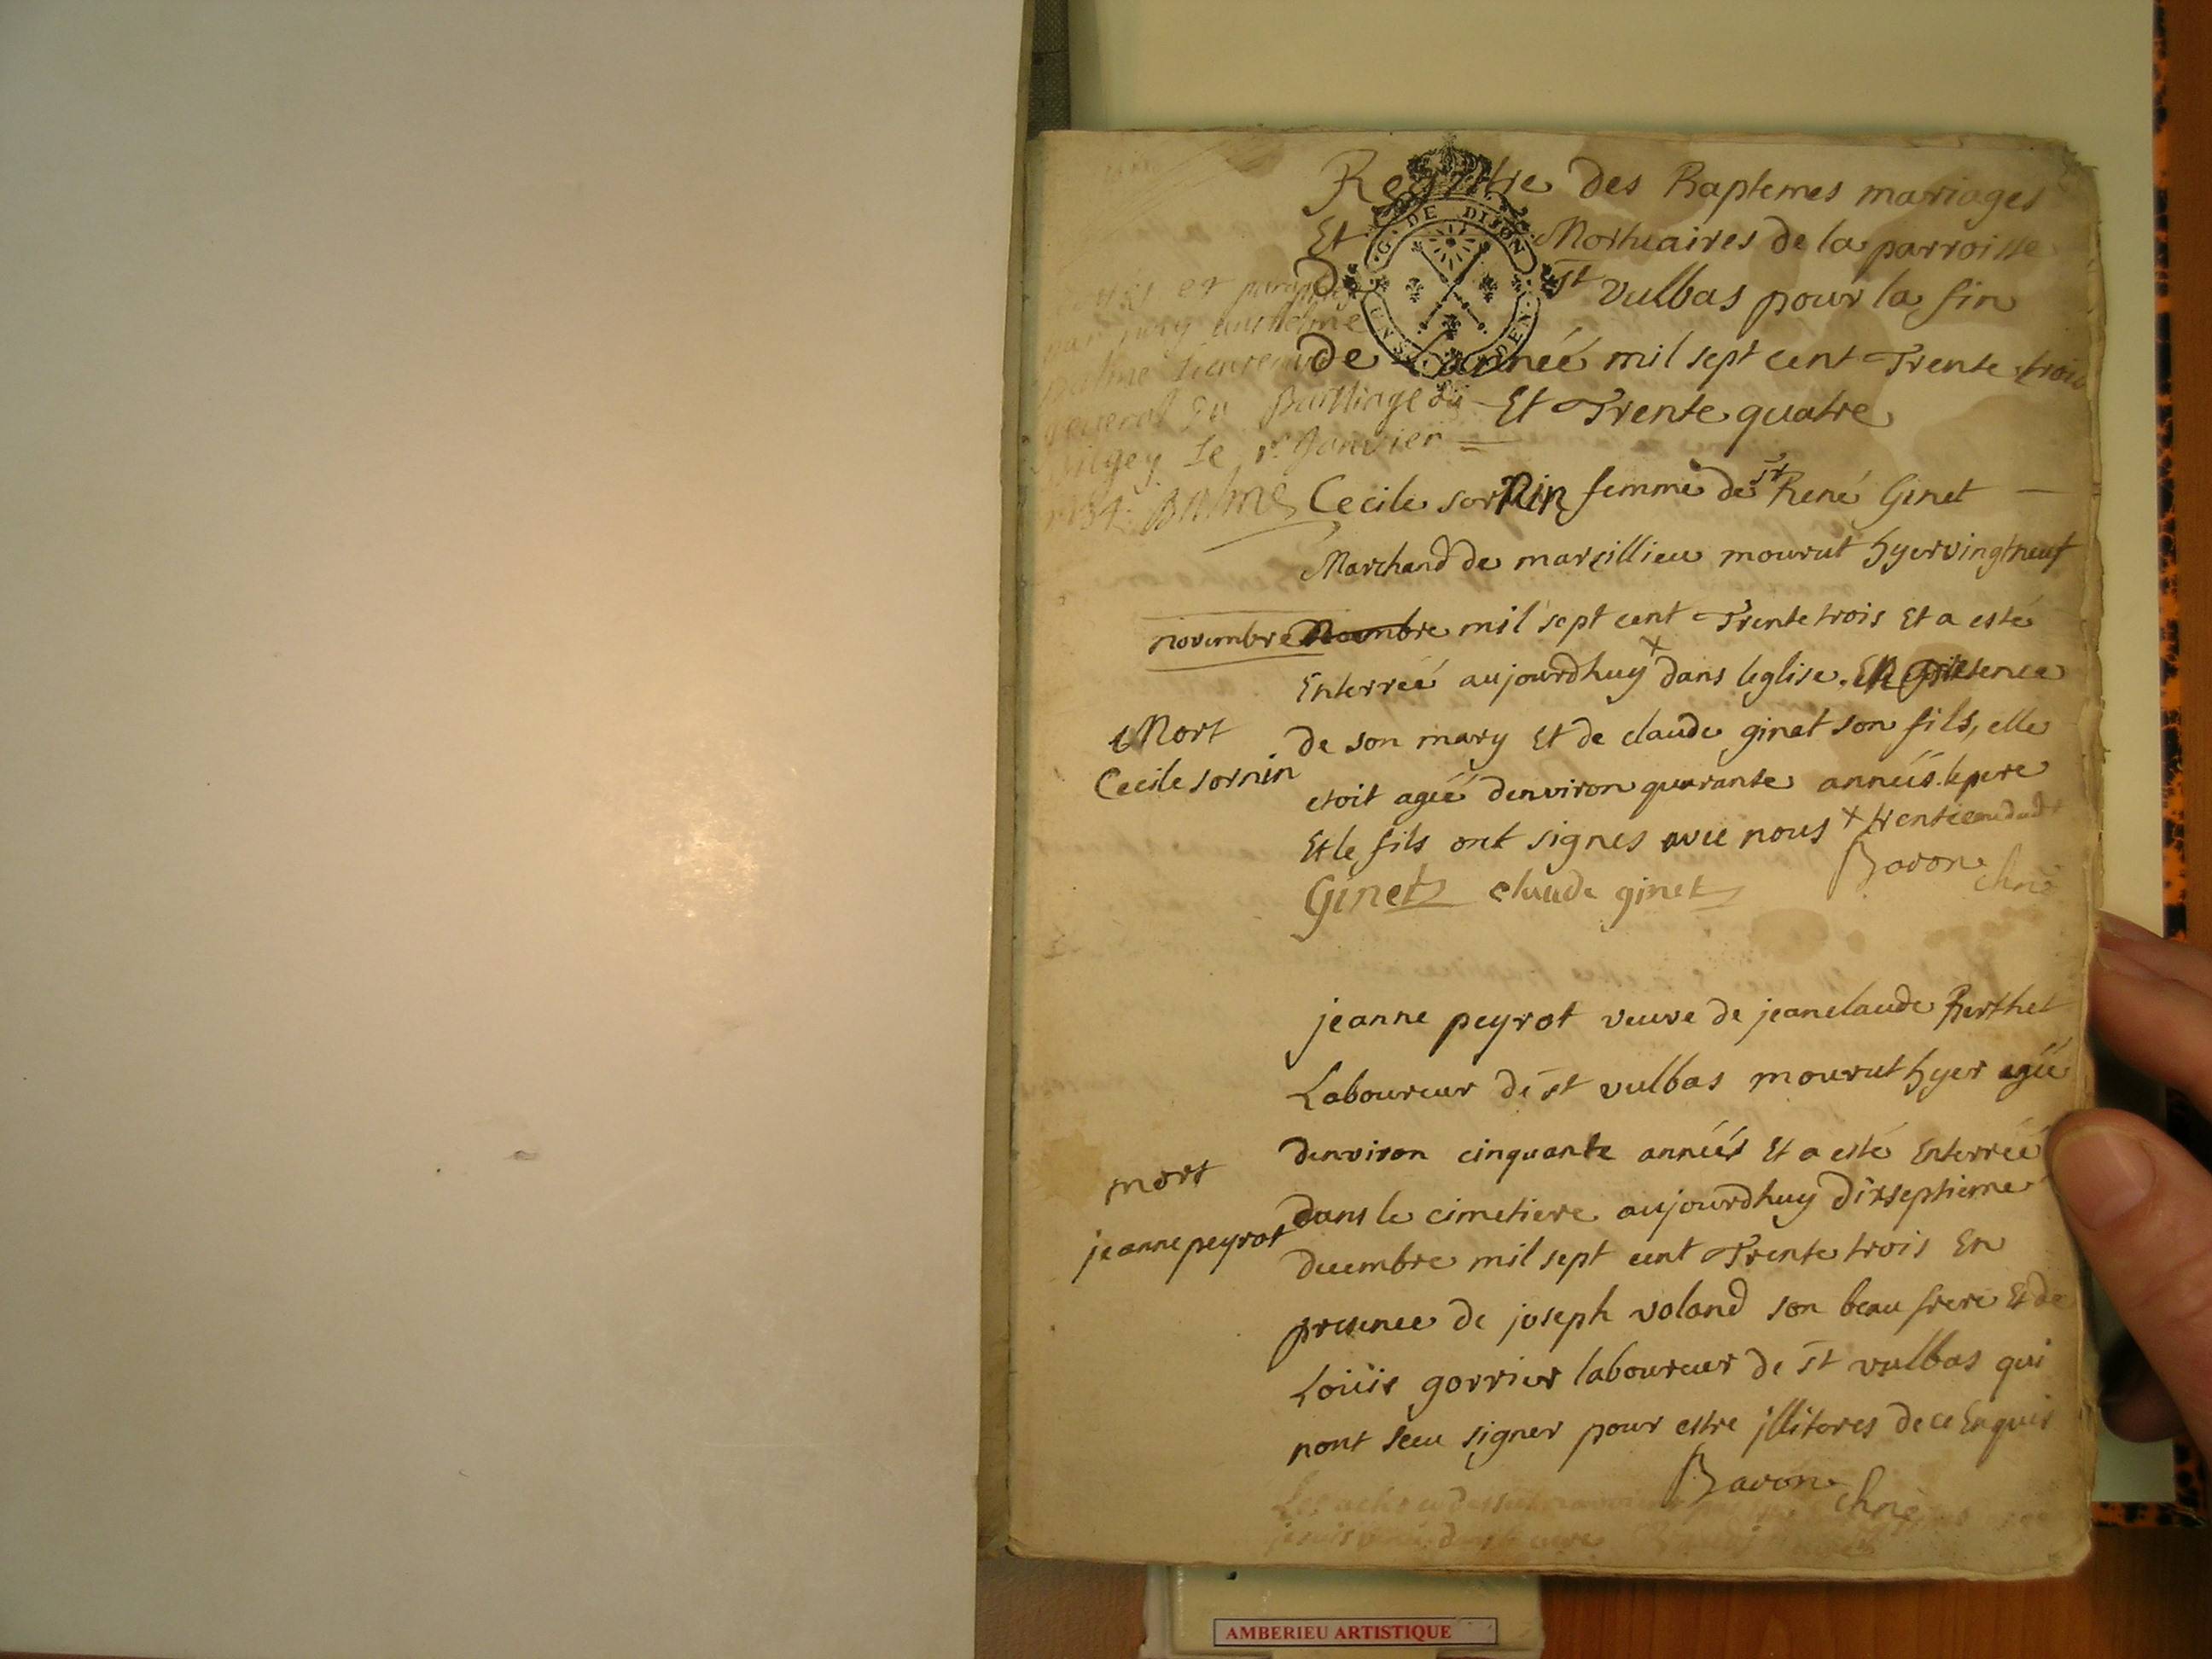 Registre des Baptemes mariages
Et Mortuaires de la parroisse
de St vulbas pour la fin
de Lannéé mil sept cent Trente trois
Et Trente quatre
G. DE DIJON
cottés et paraphés
par
general du Bailliage du
Bugey le 1r Janvier
1734. Balme
Cecile sornin femme de sr René Ginet
Marchand de marcillieu mourut hyer vingtneuf
novembre mil sept cent Trente trois Et a esté
Enterréé aujourdhuy x dans leglise. En presence
de son mary Et de claude ginet son fils, elle
etoit agéé denviron quarante annéés. le pere
Et le fils ont signes avec nous x trente
Ginet claude ginet Bavon
Mort
Cecile sornin
jeanne peyrot veuve de jeanclaude Berthet
Laboureur de st vulbas mourut hyer agéé
denviron cinquante annéés Et a esté Enterréé
dans le cimetiere aujourdhuy dixseptieme
decembre mil sept cent Trente trois En
presence de joseph voland son beau frere Et de
Loüis gorrier laboureur de st vulbas qui
nont sceu signer pour estre jlliteres de ce Enquis
Bavon
mort
jeanne peyrot
AMBERIEU ARTISTIQUE